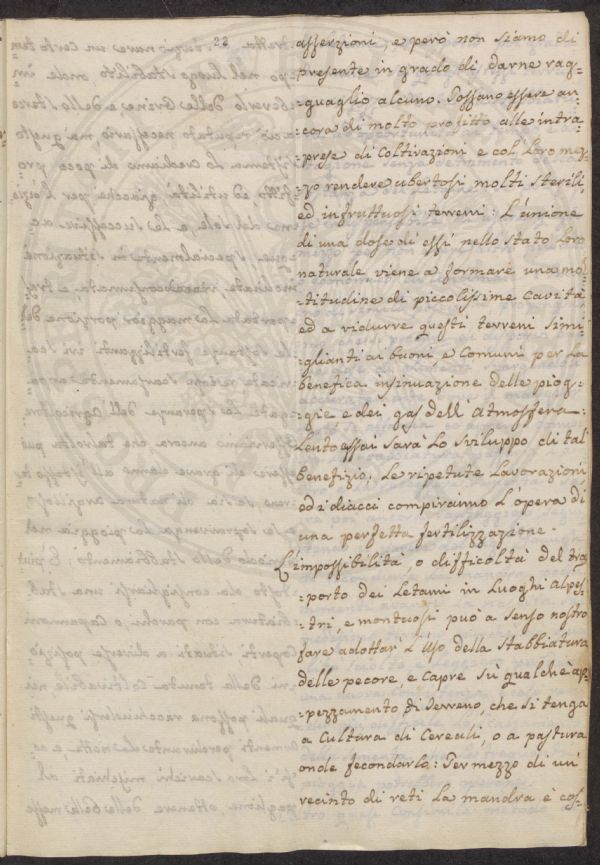 22
asserzioni, e però non siamo di
presente in grado di darne rag-
-guaglio alcuno. Possano essere an-
cora di molto profitto alle intra-
-prese di Coltivazioni e col loro mez-
-zo rendere ubertosi molti sterili
ed infruttuosi terreni: L'unione
di una dose di essi nello stato loro
naturale, viene a formare una mol-
-titudine di piccolissime Cavità
ed a ridurre questi terreni simi-
-glianti ai buoni e Comuni per la
benefica insinuazione delle piog-
-gie, e dei gas dell'atmosfera.
Lento assai sarà lo sviluppo di tal
benefizio. Le ripetute lavorazioni
ed i diacci compiranno l'opera di
una perfetta fertilizzazione.
L'impossibilità, o difficoltà del tra-
-porto dei Letami in Luoghi alpes-
-tri, e montuosi può a senso nostro
fare adottare l'uso della Stabbiatura
delle pecore, e Capre sù qualche ap-
-pezzamento di Terreno, che si tenga
a Cultura di Cereali, o a pastura
onde fecondarlo: Per mezzo di un'
recinto di reti la mandra è cos-